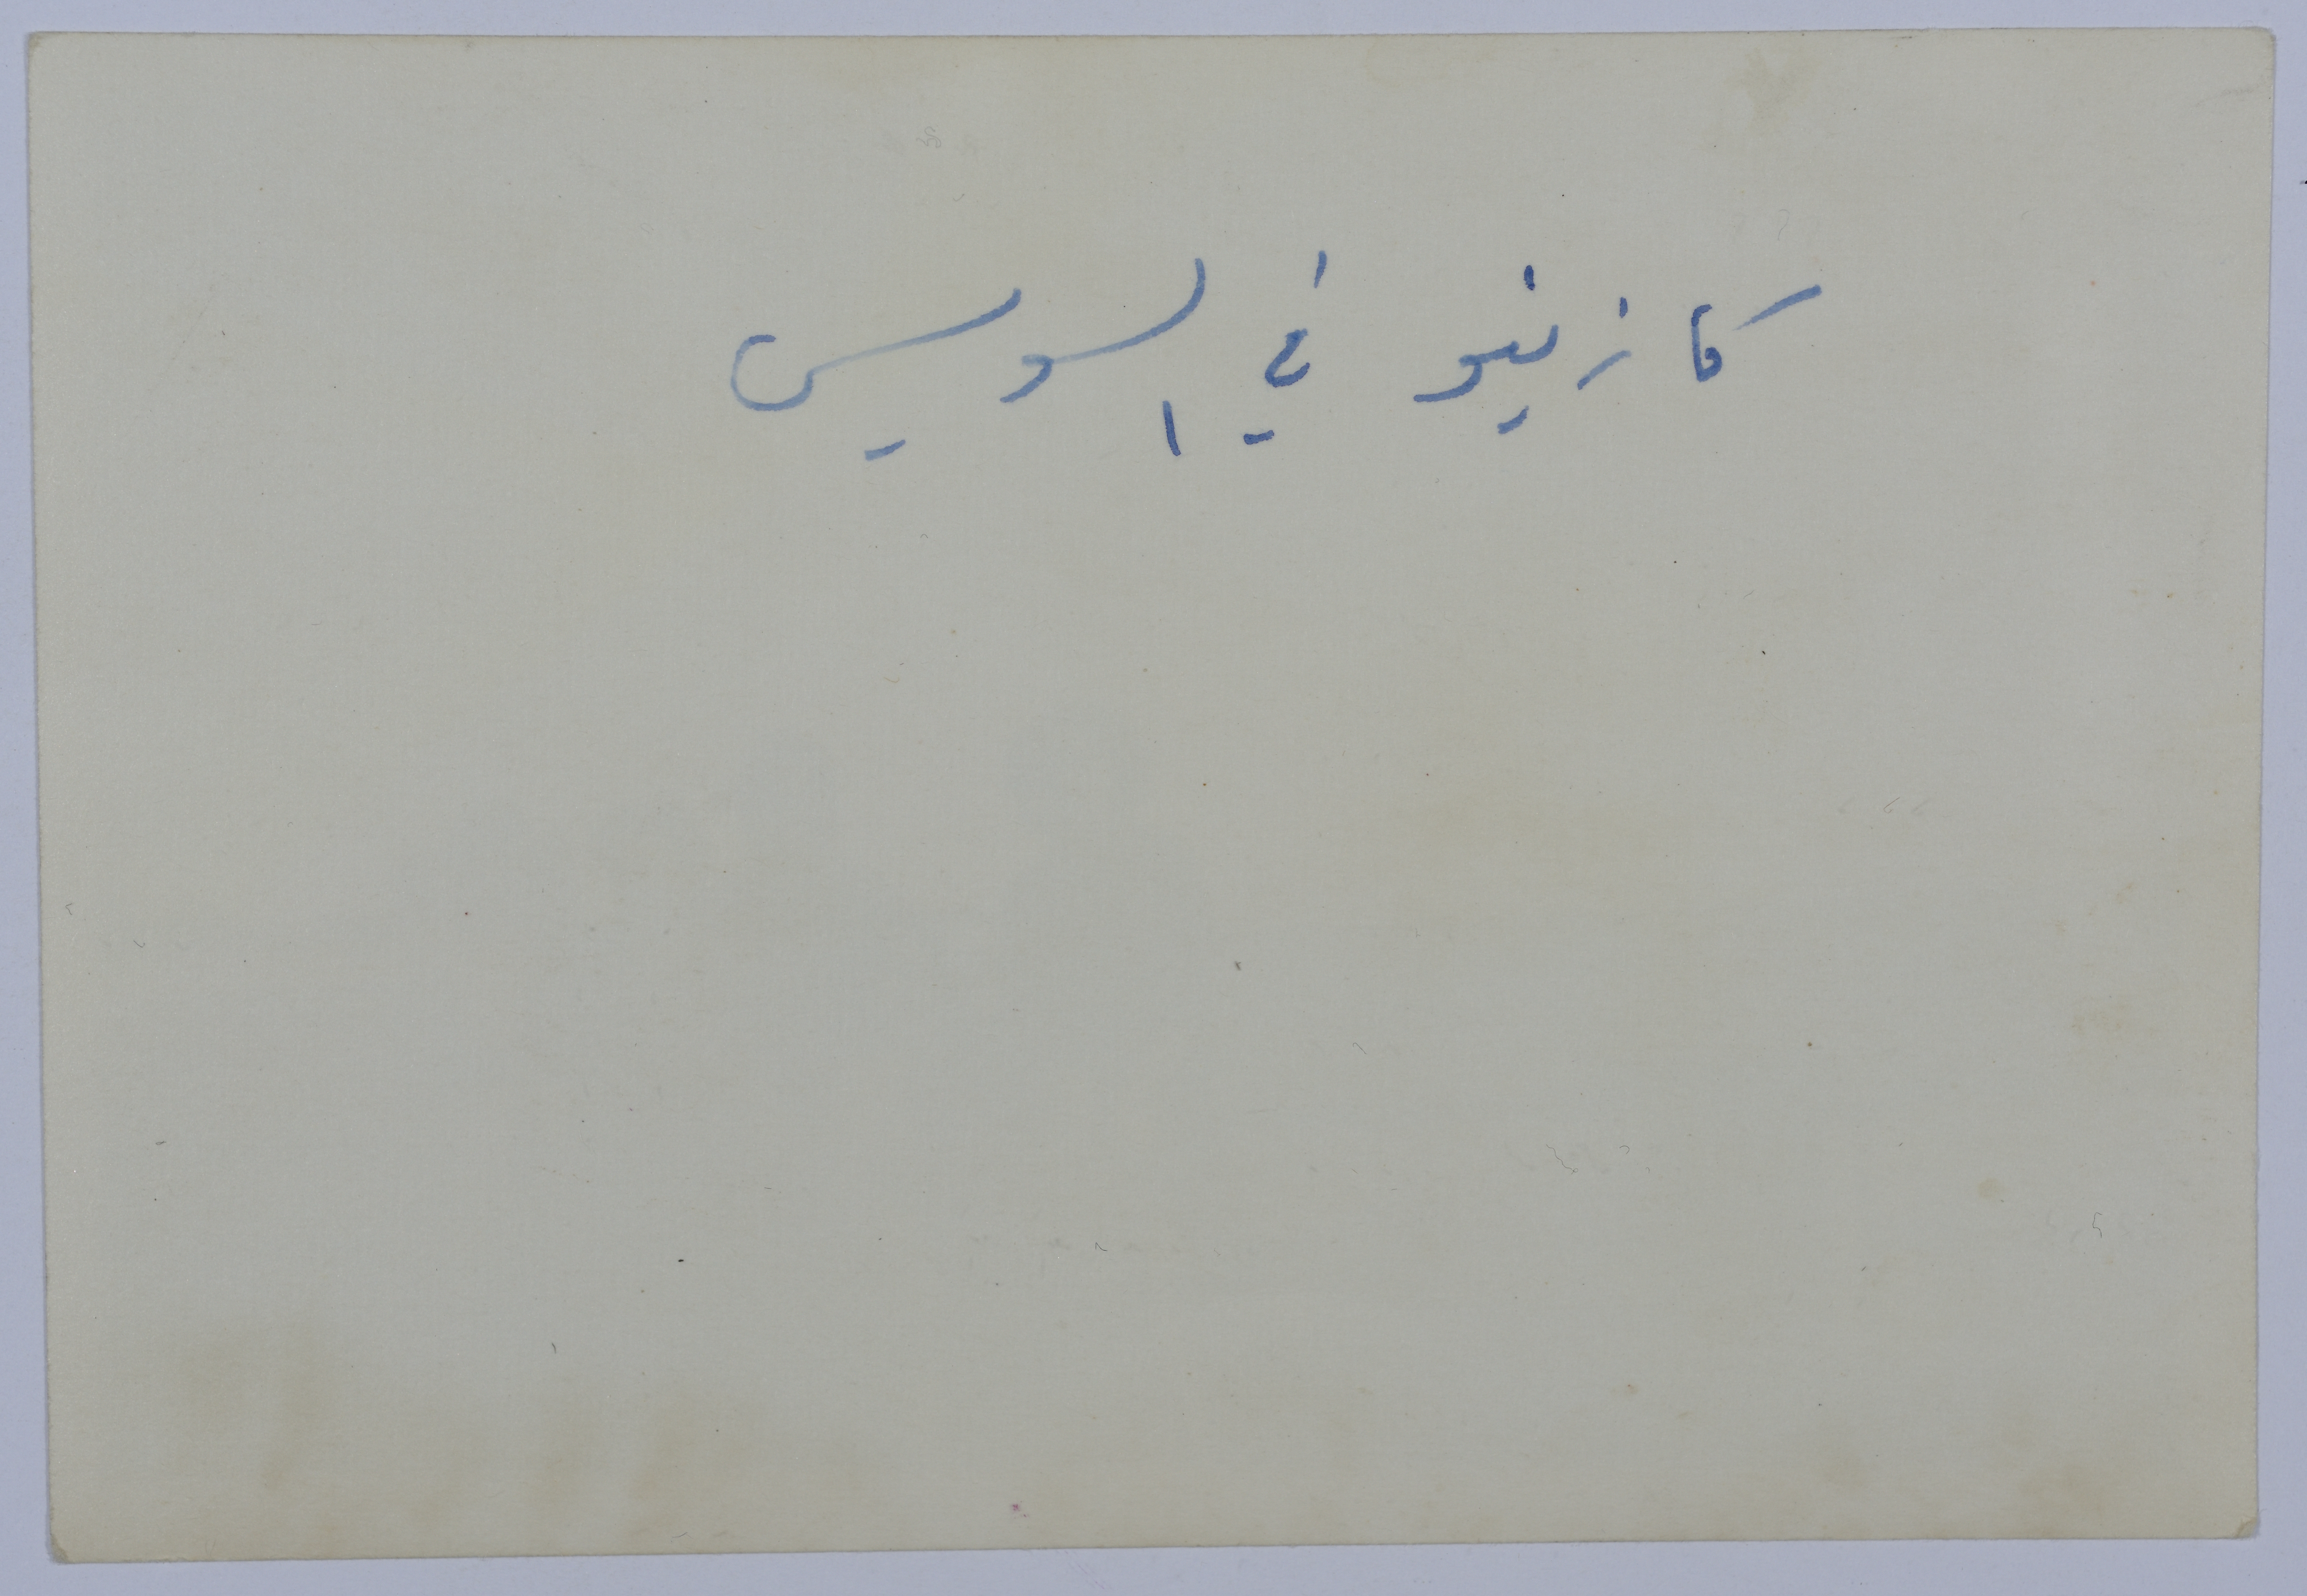 كازينو في السويس